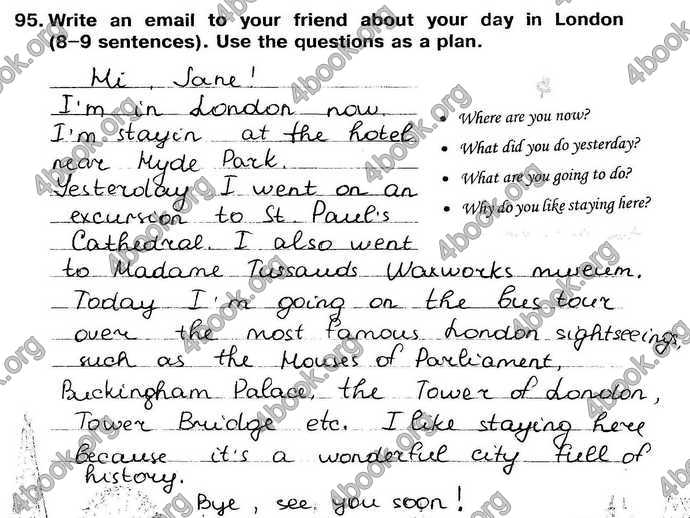 95. Write an email to your friend about your day in London
(8–9 sentences). Use the questions as a plan.
Hi, Jane!
I'm in London now.
I'm stayin at the hotel
near Hyde Park.
Yesterday I went on an
excursion to St. Paul's
Cathedral. I also went
to Madame Tussauds Waxworks museum.
Today I'm going on the bus tour
over the most famous London sightseeings,
such as the Houses of Parliament,
Buckingham Palace, the Tower of London,
Tower Bridge etc. I like staying here
because it's a wonderful city full of
history.
Bye, see you soon!
• Where are you now?
• What did you do yesterday?
• What are you going to do?
• Why do you like staying here?
4book.org